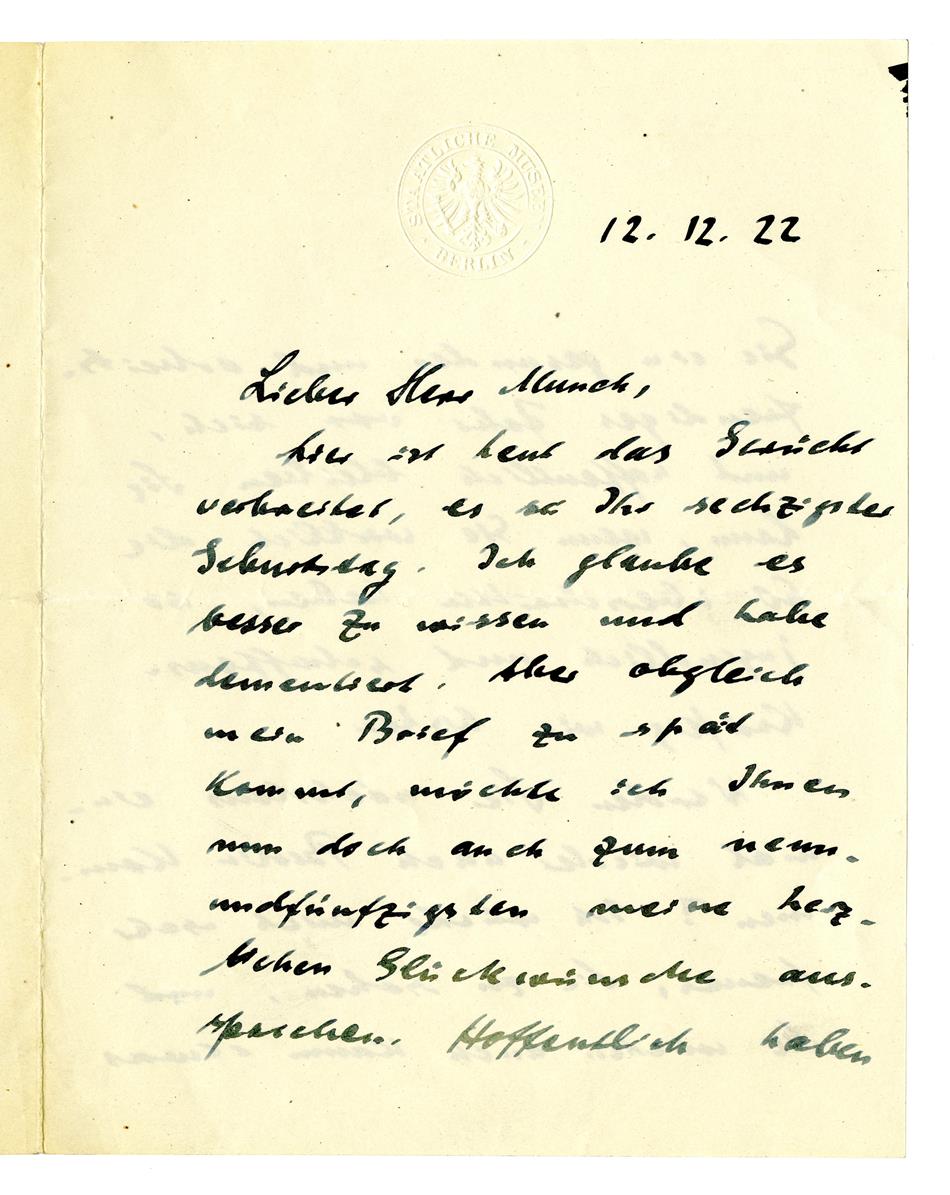 STAATLICHE MUSEEN · BERLIN ·
12. 12. 22
Lieber Herr Munch,
hier ist heut das Gerücht
verbreitet, es sei Ihr sechzigster
Geburtstag. Ich glaube es
besser zu wissen und habe
dementiert. Aber obgleich
mein Brief zu spät
kommt, möchte ich Ihnen
nun doch auch zum neun-
undfünfzigsten meine herz-
lichen Glückwünsche aus-
sprechen. Hoffentlich haben